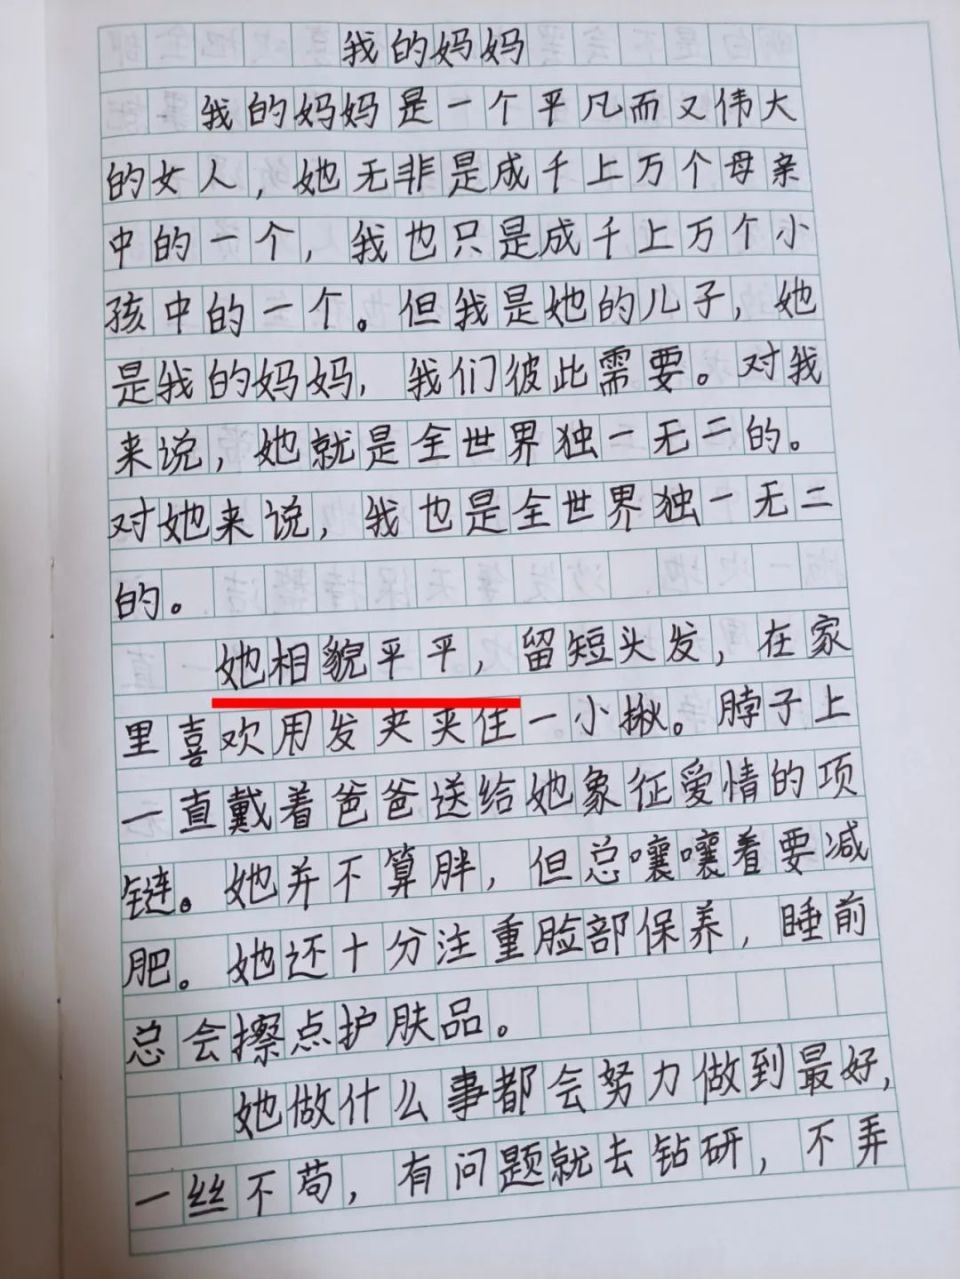 我的妈妈
我的妈妈是一个平凡而又伟大
的女人，她无非是成千上万个母亲
中的一个，我也只是成千上万个小
孩中的一个。但我是她的儿子，她
是我的妈妈，我们彼此需要。对我
来说，她就是全世界独一无二的。
对她来说，我也是全世界独一无二
的。
她相貌平平，留短头发，在家
里喜欢用发夹夹住一小揪。脖子上
一直戴着爸爸送给她象征爱情的项
链。她并不算胖，但总嚷嚷着要减
肥。她还十分注重脸部保养，睡前
总会擦点护肤品。
她做什么事都会努力做到最好，
一丝不苟，有问题就去钻研，不弄